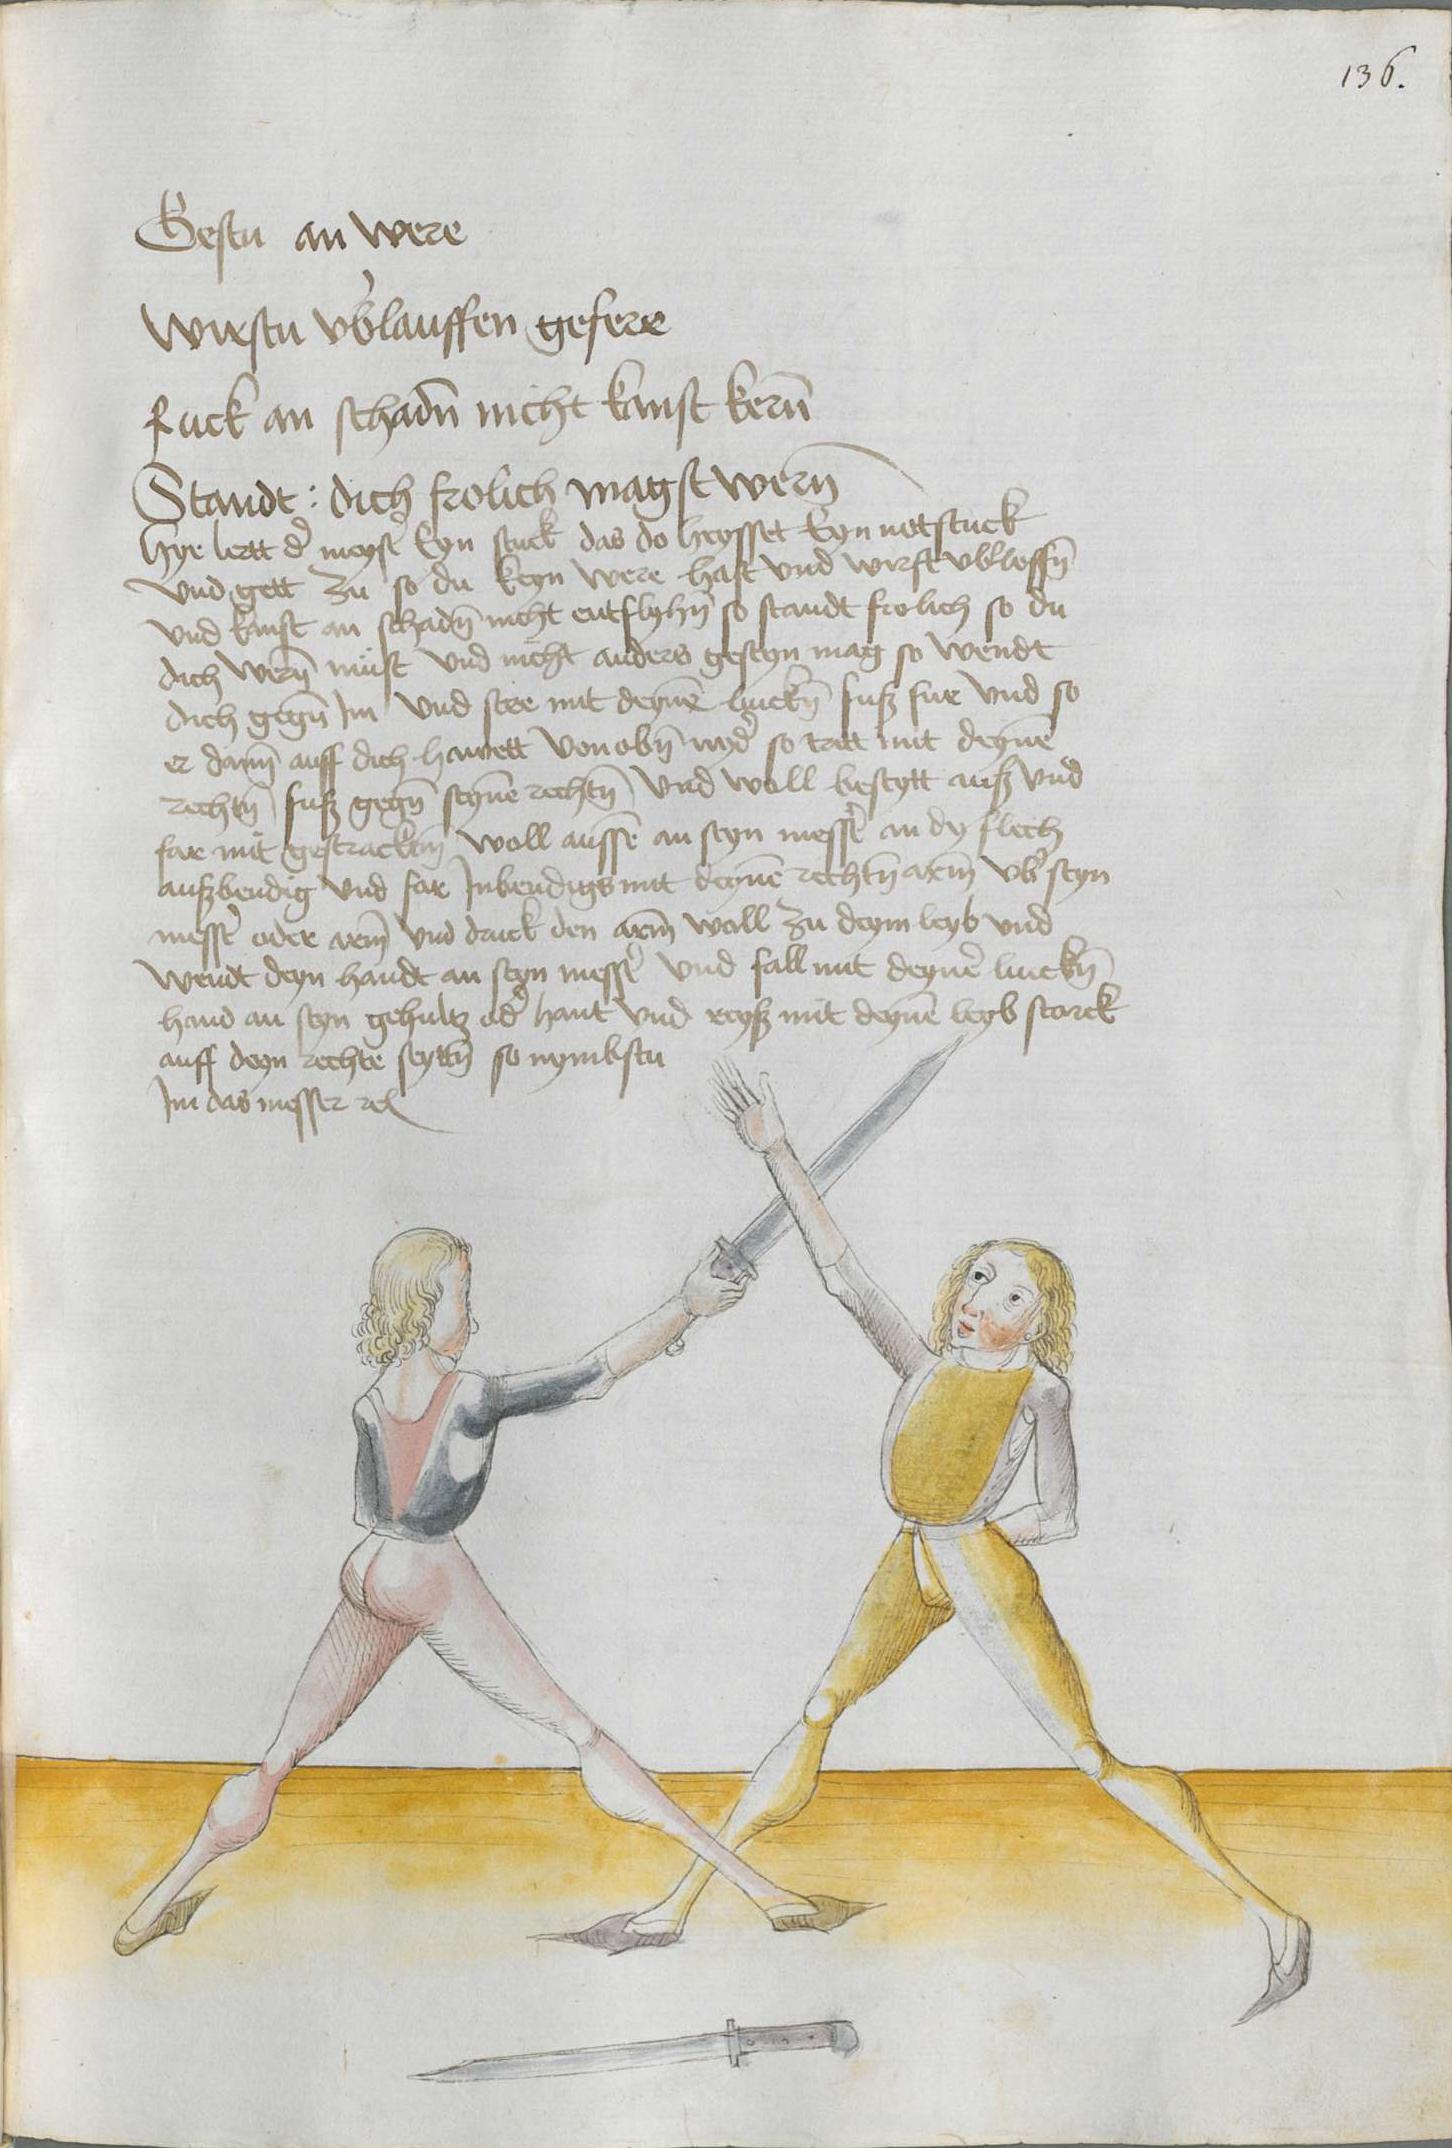 136.
Gestu an were
wirstu vb'lauffen gefere
ruck an schadn̄ nicht kanst kern̄
Standt : dich frolich magst wern̄
Hye lertt d' meyst' eyn stuck das do heysset eyn notstuck
vnd gett zu so du keyn were hast vnd wirst vbloffn̄
vnd kanst an schadn̄ nicht entflyhn̄ so standt frolich so du
dich wern̄ must vnd nicht anders geseyn mag so wendt
dich gegn̄ Im vnd stee mit deynē linckn̄ fuß fur vnd so
er dann̄ auff dich hawett von obn̄ nyd' so tritt mit deynē
rechtn̄ fuß gegn̄ seynē rechtn̄ vnd woll beseytt auß vnd
far mit gestracktn̄ woll aussē an seyn mess' an dy flech
außbendig vnd far Inbendigs mit deynē rechtn̄ arm̄ vb' seyn
mess' oder arm̄ vnd druck den arm̄ woll zu deym leyb vnd
wendt deyn handt an seyn mess' vnd fall mit deyn' linckn̄
hand an seyn gehultz od' hant vnd reyß mit deynē leyb starck
auff deyn rechte seyttn̄ so nymbstu
Im das messer rel